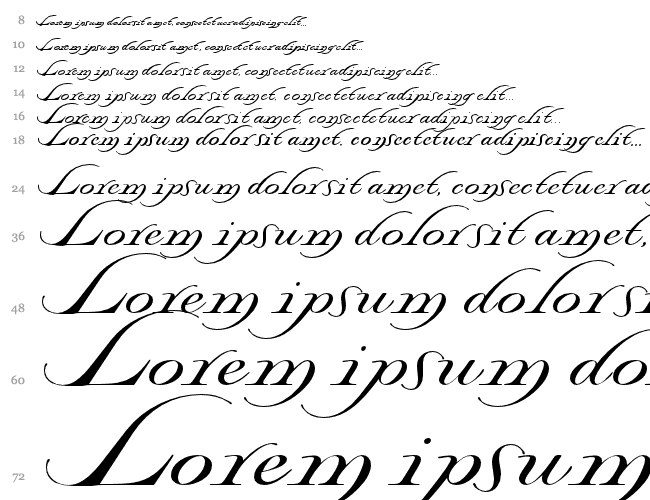 8 Lorem ipsum dolor sit amet, consectetuer adipiscing elit...
10 Lorem ipsum dolor sit amet, consectetuer adipiscing elit...
12 Lorem ipsum dolor sit amet, consectetuer adipiscing elit...
14 Lorem ipsum dolor sit amet, consectetuer adipiscing elit...
16 Lorem ipsum dolor sit amet, consectetuer adipiscing elit...
18 Lorem ipsum dolor sit amet, consectetuer adipiscing elit...
24 Lorem ipsum dolor sit amet, consectetuer ad
36 Lorem ipsum dolor sit amet,
48 Lorem ipsum dolor si
60 Lorem ipsum do
72 Lorem ipsum